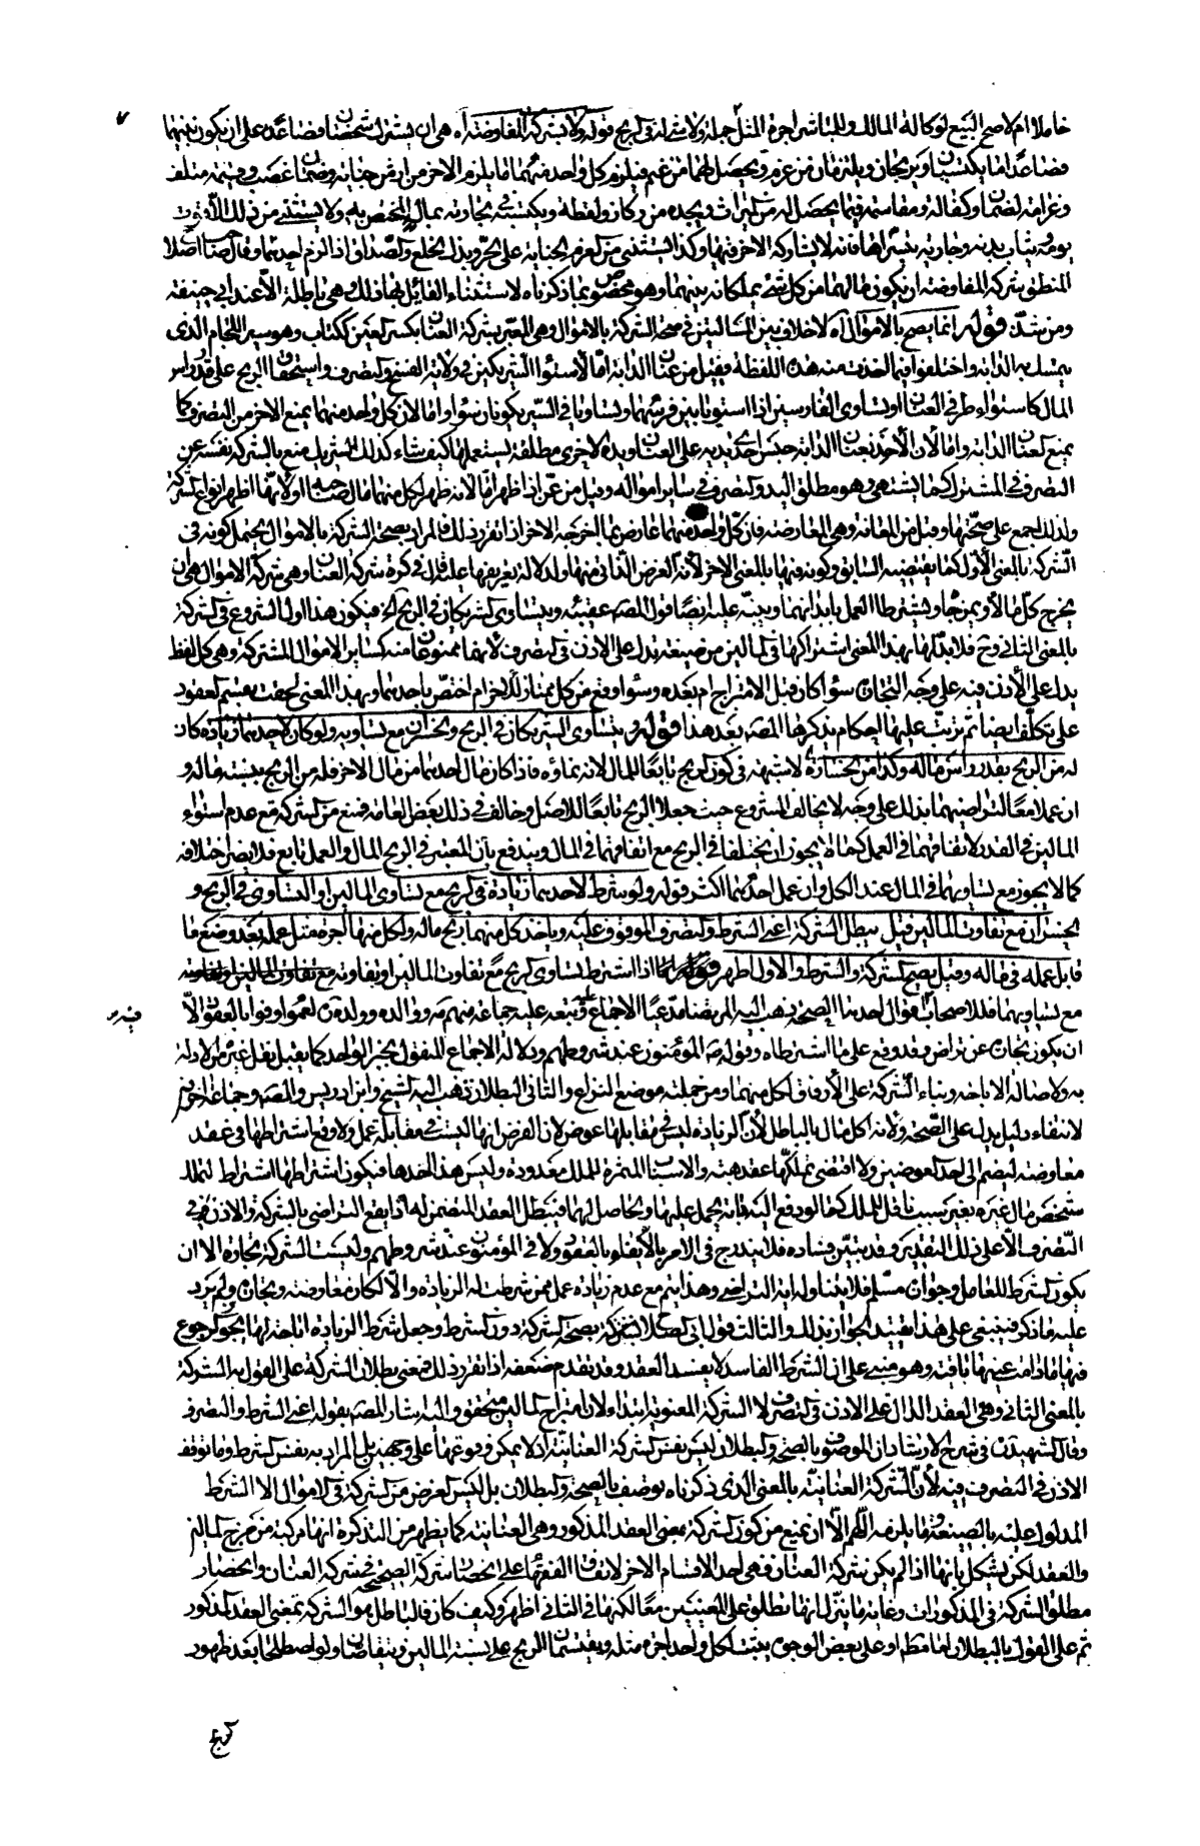 ولا شركة المفاوضة اه هي ان يشترك شخصان فصاعدا على ان يكون بينهما
ما يكتسبان ويربحان ويلتزمان من غرم ويحصل لهما من غنم فيلزم كل واحد منهما ما يلزم الاخر من ارش جناية وضمان غصب وقيمة متلف
وغرامة لضمان او كفالة ومقاسمته فيما يحصل له من ميراث ويجده من ركاز ولقطة ويكتسبه في تجارته بماله المختص به ولا يستثنى من ذلك الا قوت
يومه وثياب بدنه وجارية يتسراها فانه لا يشاركه الاخر فيها وكذا يستثنى من الغرم الجناية على الحر وبذل الخلع والصداق اذا لزم احدهما
شركة المفاوضة ان يكون مالهما من كل شيء يملكانه بينهما وهو مخصوص بما ذكرناه لاستثناء القائل بها ذلك وهي باطلة الا عند ابي حنيفة
ومن شذ قوله انما يصح بالاموال اه لا خلاف بين المسلمين في صحة الشركة بالاموال وهي المعبر بشركة العنان بكسر العين ككتاب وهو سير اللجام الذي
يمسك به الدابة واختلفوا فيما اخذت منه هذه اللفظة فقيل من عنان الدابة اما لاستواء الشريكين في ولاية الفسخ والتصرف واستحقاق الربح على قدر راس
المال كاستواء طرفي العنان او تساوي الفارسين اذا استويا بين فرسيهما وتساويا في السير يكونان سواء واما لان كل واحد منهما يمنع الاخر من التصرف كما
يمنع العنان الدابة واما لان الاخذ بعنان الدابة حبس احدى يديه على العنان ويده الاخرى مطلقة يستعملها كيف شاء كذلك الشريك منع بالشركة نفسه عن
التصرف في المشترك كما يشتهي وهو مطلق اليد والتصرف في ساير امواله وقيل من عن اذا ظهر اما لانه ظهر لكل منهما مال صاحبه او لانها اظهر انواع الشركة
ولذلك اجمع على صحتها وقيل من المعانة وهي المعارضة فان كل واحد منهما عارض بما اخرجه الاخر اذا تقرر ذلك فالمراد بصحة الشركة بالاموال يحتمل كونه في
الشركة بالمعنى الاول كما يقتضيه السابق وكونه فيها بالمعنى الاخر لانه الغرض الذاتي منها ولدلالة تعريفها عليه قال في كره شركة العنان وهي شركة الاموال هي ان
يخرج كل مالا ويمزجا ويشترطا العمل بابدانهما وينبه عليه ايضا قول المصه عقيبه ويتساوى الشريكان في الربح الخ فيكون هذا اول الشروع في الشركة
بالمعنى الثاني وح فلا بد لها بهذا المعنى اشتراكها في المالين من صيغة تدل على الاذن في التصرف لانهما ممنوعان منه كسائر الاموال المشتركة وهي كل لفظ
يدل على الاذن فيه على وجه التجارة سواء كان قبل الامتزاج ام بعده وسواء وقع من كل منهما للاخر ام اختص باحدهما وبهذا المعنى لحقت بقسم العقود
على تكلف ايضا ثم ترتب عليها احكام يذكرها المصه بعد هذا قوله ويتساوى الشريكان في الربح والخسران مع تساويه ولو كان لاحدهما زيادة كان
له من الربح بقدر راس ماله وكذا من الخسارة لا شبهة في كون الربح تابعا للمال لانه نماؤه فاذا كان مال احدهما من مال الاخر فله من الربح بنسبة ماله و
ان عملا معا لتراضيهما بذلك على وجه لا يخالف المشروع حيث جعلا الربح تابعا للاصل وخالف في ذلك بعض العامة فمنع من الشركة مع عدم استواء
المالين في القدر لاتفاقهما في العمل كما لا يجوز ان يختلفا في الربح مع اتفاقهما في المال ويندفع بان المعتبر في الربح المال والعمل تابع فلا يضر اختلافه
كما لا يجوز مع تساويهما في المال عند الكل وان عمل احدهما اكثر قوله ولو شرط لاحدهما زيادة في الربح مع تساوي المالين او التساوي في الربح و
الخسران مع تفاوت المالين قيل يبطل الشركة اعني الشرط والتصرف الموقوف عليه وياخذ كل منهما ربح ماله ولكل منهما اجرة مثل عمله بعد وضع ما
قابل عمله في ماله وقيل يصح الشركة والشرط والاول اظهر اذا اشترط تساوي الربح مع تفاوت المالين او تفاوته
مع تساويهما فللاصحاب اقوال احدها الصحة ذهب اليه المرتضى مدعيا الاجماع وتبعه عليه جماعة منهم مه ووالده وولده لعموم اوفوا بالعقود والا
ان يكون تجارة عن تراض وقد وقع على ما اشترطاه وقوله صه المؤمنون عند شروطهم ودلالة الاجماع المنقول بخبر الواحد كما يقبل نقل غيره من الادلة
به ولاصالة الاباحة وبناء الشركة على الارفاق لكل منهما ومن جملته موضع النزاع والثاني البطلان ذهب اليه الشيخ وابن ادريس والمصه وجماعة اخرى
لانتفاء دليل يدل على الصحة ولانه اكل مال بالباطل لان الزيادة ليس في مقابلها عوض لان الفرض انها ليست في مقابلة عمل ولا وقع اشتراطها في عقد
معاوضة لتضم الى احد العوضين ولا اقتضى تملكها عقد هبة والاسباب المثمرة للملك معدودة وليس هذا احدها فيكون اشتراطها اشتراط لتملك
شخص مال غيره بغير سبب ناقل للملك كما لو دفع اليه دابة يحمل عليها والحاصل لهما فتبطل العقد المتضمن له اذ لم يقع التراضي بالشركة والاذن في
التصرف الا على ذلك التقدير وقد تبين فساده فلا يندرج في الامر بالايفاء بالعقود ولا في المؤمنون عند شروطهم وليست الشركة تجارة الا ان
يكون الشرط للعامل وجوازه مسلم فلا يتناوله اية التراضي وهذا يتم مع عدم زيادة عمل ممن شرطت له الزيادة والا لكان معاوضة وتجارة ولم يرد
عليه ما ذكر فينبغي على هذا تقييد الجواز بذلك والثالث قول ابي الصلاح بصحة الشركة دون الشرط وجعل شرط الزيادة اباحة لها يجوز الرجوع
فيها ما دامت عينها باقية وهو مبني على ان الشرط الفاسد لا يفسد العقد وقد تقدم ضعفه اذا تقرر ذلك فمعنى بطلان الشركة على القول به الشركة
بالمعنى الثاني وهي العقد الدال على الاذن في التصرف لا الشركة المعنوية ابتداء لان امتزاج المالين متحقق واليه اشار المصه بقوله اعني الشرط والتصرف
وقال الشهيد ره في شرح الارشاد ان الموصوف بالصحة والبطلان ليس نفس الشركة العنانية اذ لا يمكن وقوعها على وجهين بل المراد به نفس الشرط وما توقف
الاذن في التصرف فيه لان الشركة العنانية بالمعنى الذي ذكرناه يوصف بالصحة والبطلان بل ليس الغرض من الشركة في الاموال الا الشرط
المدلول عليه بالصيغة وما يلزمه اللهم الا ان يمنع من كون الشركة بمعنى العقد المذكور وهي العنانية كما يظهر من التذكرة انها مركبة من مزج المالين
والعقد لكن يشكل بانها اذا لم يكن شركة العنان فهي احد الاقسام الاخر لاتفاق الفقهاء على انحصار شركة الصحيح في شركة العنان وانحصار
مطلق الشركة في المذكورات وغاية ما يتنزل انها تطلق على المعنيين معا لكنها في الثاني اظهر وكيف كان فالباطل هو الشركة بمعنى العقد المذكور
ثم على القول بالبطلان اما مطلقا او على بعض الوجوه يثبت لكل واحد اجرة مثله ويقتسمان الربح على نسبة المالين ويتقاصان ولو اصطلحا بعد ظهور